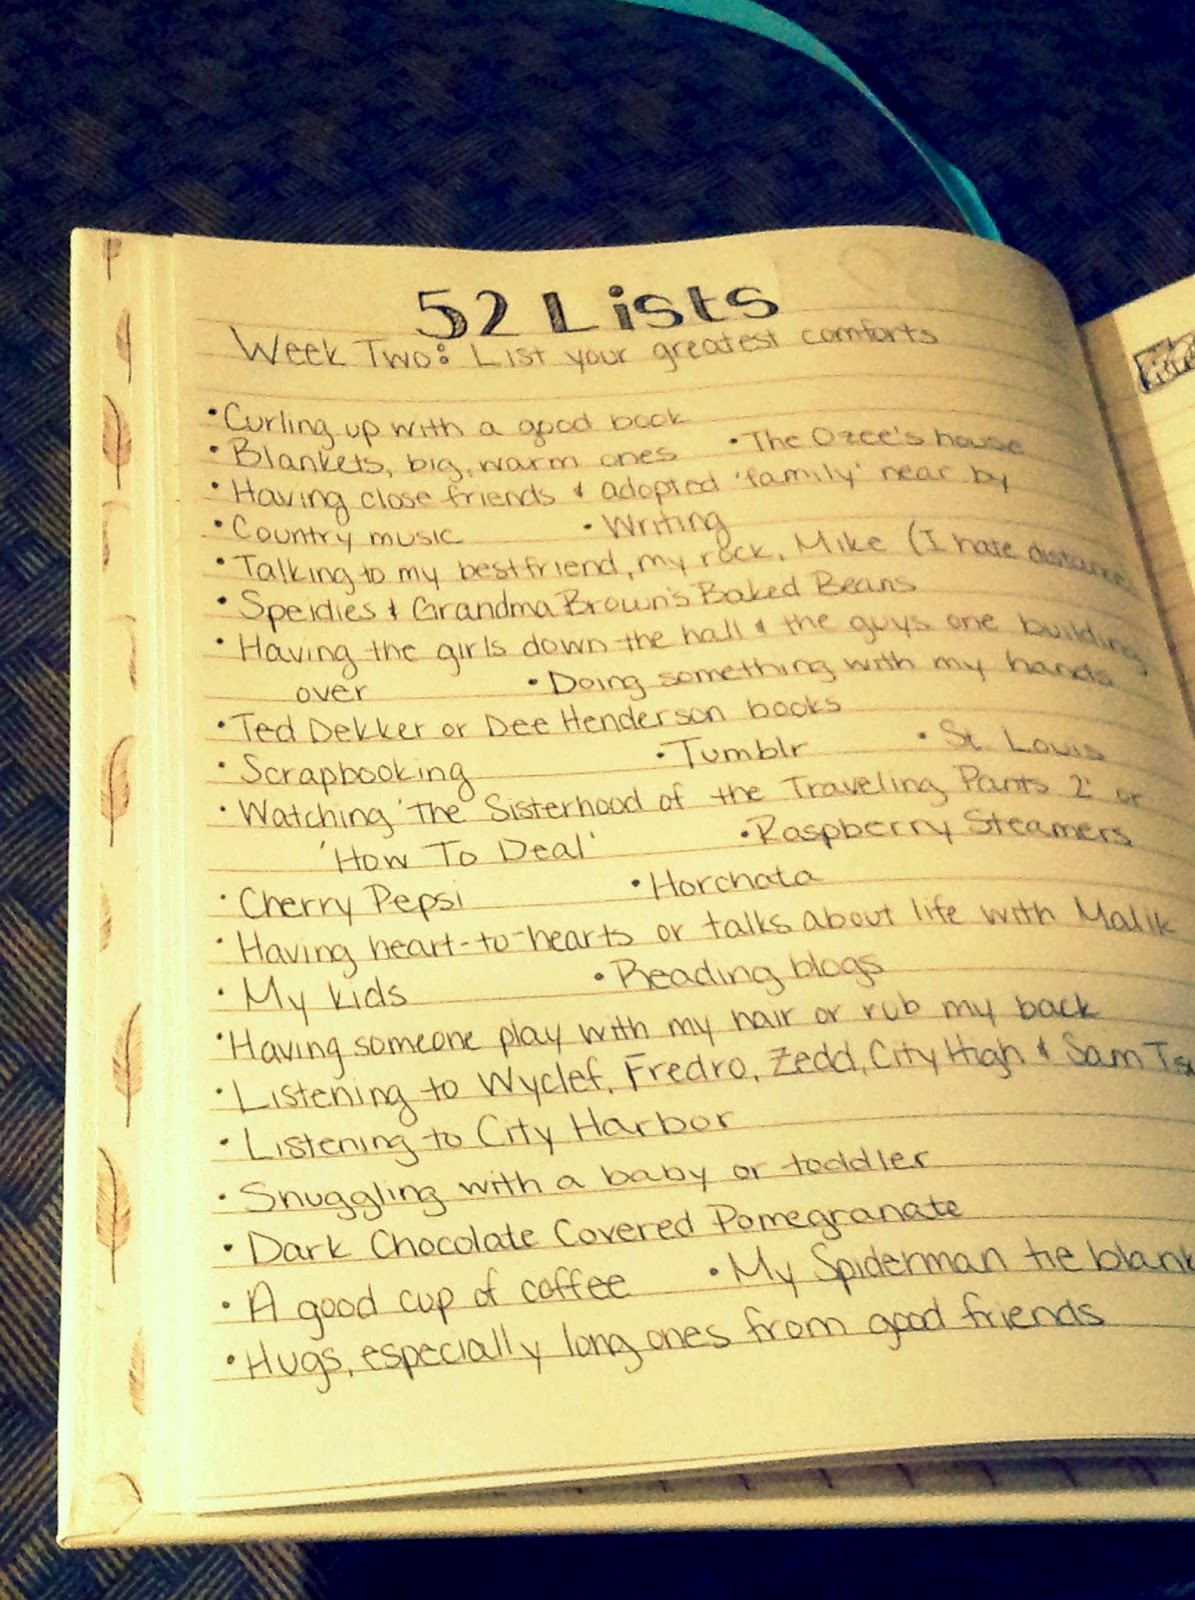 52 Lists
Week Two: List your greatest comforts
• Curling up with a good book
• Blankets, big, warm ones • The Ozee's house
• Having close friends & adopted 'family' near by
• Country music • Writing
• Talking to my bestfriend, my rock, Mike (I hate distance
• Speidies & Grandma Brown's Baked Beans
• Having the girls down the hall & the guys one building
over • Doing something with my hands
• Ted Dekker or Dee Henderson books
• Scrapbooking • Tumblr • St. Louis
• Watching 'The Sisterhood of the Traveling Pants 2' or
'How To Deal' • Raspberry Steamers
• Cherry Pepsi • Horchata
• Having heart-to-hearts or talks about life with Malik
• My kids • Reading blogs
• Having someone play with my hair or rub my back
• Listening to Wyclef, Fredro, Zedd, City High & Sam
• Listening to City Harbor
• Snuggling with a baby or toddler
• Dark Chocolate Covered Pomegranate
• A good cup of coffee • My Spiderman tie
• Hugs, especially long ones from good friends